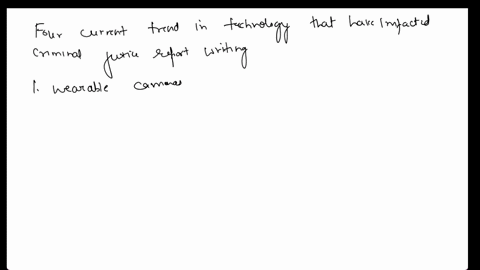 Four current trend in technology that have impacted
criminal justice report writing
1. wearable cameras